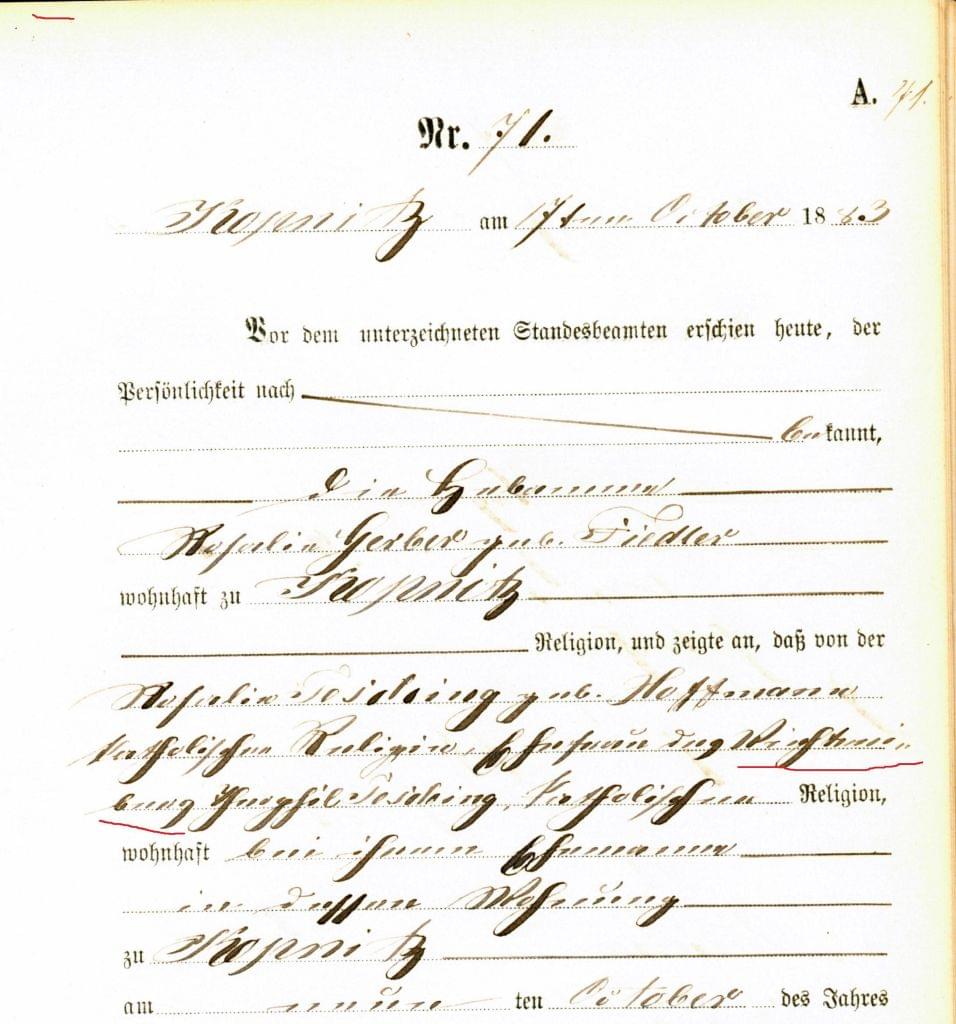 A. 71.
Nr. 71.
Kopnitz am 17ten October 1883
Vor dem unterzeichneten Standesbeamten erschien heute, der
Persönlichkeit nach
bekannt,
die Hebamme
Rosalie Gerber geb. Fiedler
wohnhaft zu Kopnitz
Religion, und zeigte an, daß von der
Rosalie Tesching geb. Hoffmann
katholischer Religion, Ehefrau des
Theophil Tesching, katholischen Religion,
wohnhaft bei ihrem Ehemanne
in dessen Wohnung
zu Kopnitz
am neun ten October des Jahres